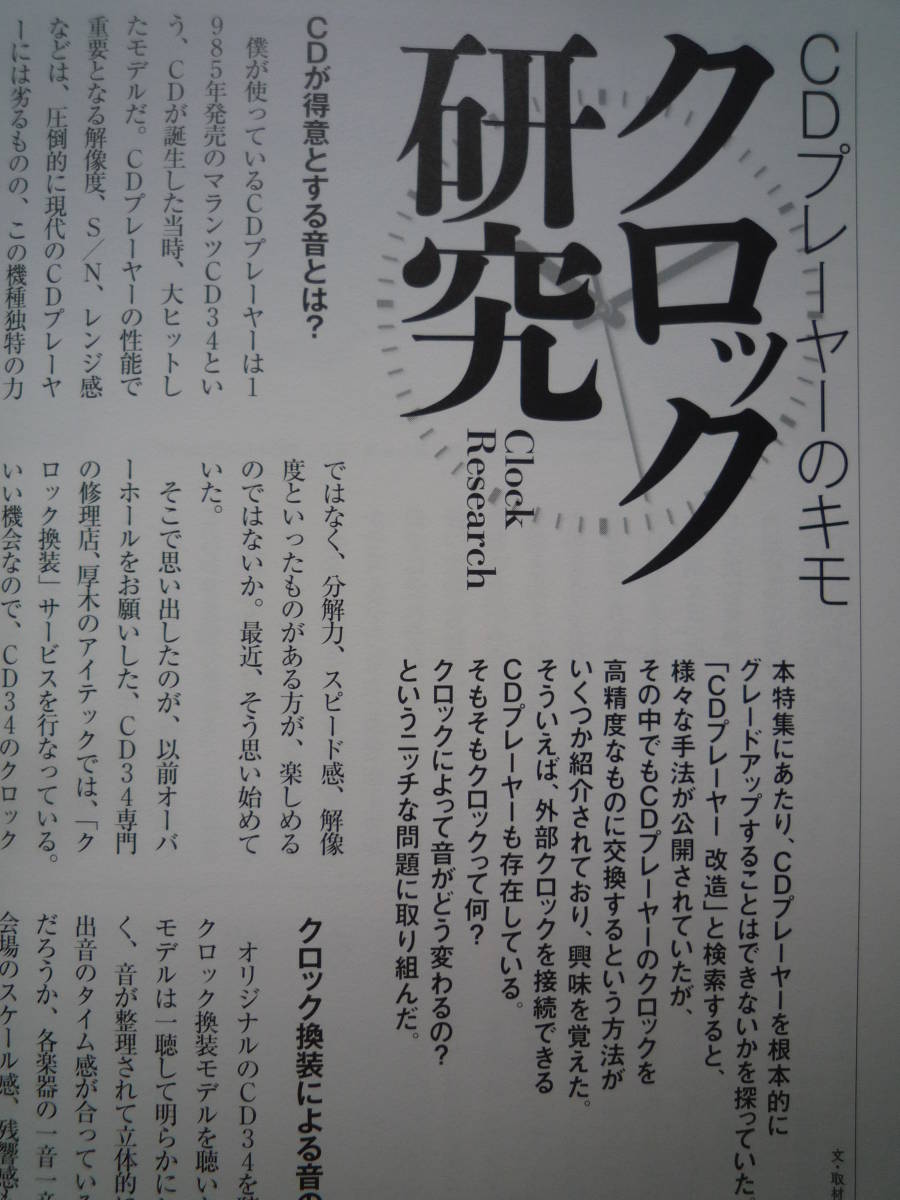 CDプレーヤーのキモ
クロック
研究
Clock
Research
本特集にあたり、CDプレーヤーを根本的に
グレードアップすることはできないかを探っていた
「CDプレーヤー 改造」と検索すると、
様々な手法が公開されていたが、
その中でもCDプレーヤーのクロックを
高精度なものに交換するという方法が
いくつか紹介されており、興味を覚えた。
そういえば、外部クロックを接続できる
CDプレーヤーも存在している。
そもそもクロックって何?
クロックによって音がどう変わるの?
というニッチな問題に取り組んだ。
文・取材
CDが得意とする音とは?
僕が使っているCDプレーヤーは1
985年発売のマランツCD34とい
う、CDが誕生した当時、大ヒットし
たモデルだ。CDプレーヤーの性能で
重要となる解像度、S/N、レンジ感
などは、圧倒的に現代のCDプレーヤ
ーには劣るものの、この機種独特の力
ではなく、分解力、スピード感、解像
度といったものがある方が、楽しめる
のではないか。最近、そう思い始めて
いた。
そこで思い出したのが、以前オーバ
ーホールをお願いした、CD34専門
の修理店、厚木のアイテックでは、「ク
ロック換装」サービスを行なっている。
いい機会なので、CD34のクロック
クロック換装による音の
オリジナルのCD34を
クロック換装モデルを聴い
モデルは一聴して明らかに
く、音が整理されて立体的
出音のタイム感が合っている
だろうか、各楽器の一音一音
会場のスケール感、残響感